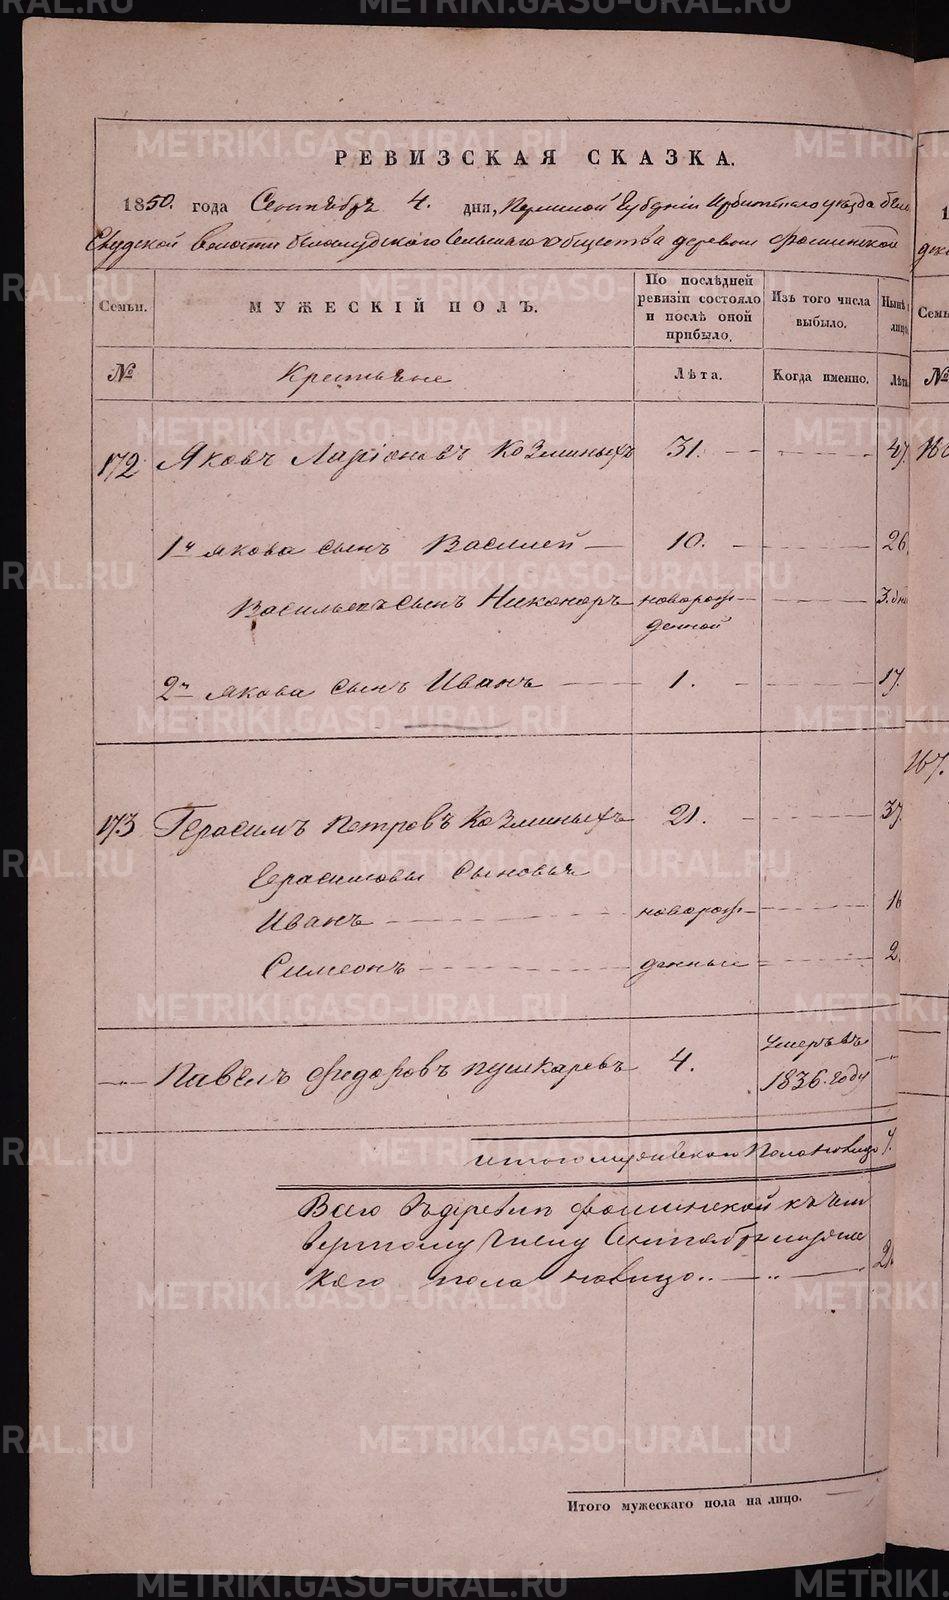 РЕВИЗСКАЯ СКАЗКА.
1850. года Сентябръ 4. дня, Пермской Губерніи Ирбитскаго уезда бело
Слудской волости белослудского Сельскаго общества деревни Фоминской
Семьи. МУЖЕСКІЙ ПОЛЪ. По послѣдней ревизіи состояло и послѣ оной прибыло. Изъ того числа выбыло. Нынѣ лицо.
№ Крестьяне Лѣта. Когда именно. Лѣта
172 Яковъ Ларіоновъ Козминыхъ 31. 47.
1й Якова сынъ Василей 10. 26.
Васильевъ сынъ Никоноръ новорож 3. дни
денной
2й Якова сынъ Иванъ 1. 17.
173 Герасимъ Петровъ Козминыхъ 21. 37.
Герасимовы сыновья
Иванъ новорож 16
Симеонъ денные 2.
Павелъ Федоровъ Пушкаревъ 4. Умеръ въ
1836. году
Итого мужеского Пола на лицо
Всего въ деревни Фоминской къ чет
вертому числу Сентября мужес
каго пола на лицо
Итого мужескаго пола на лицо.
167.
METRIKI.GASO-URAL.RU